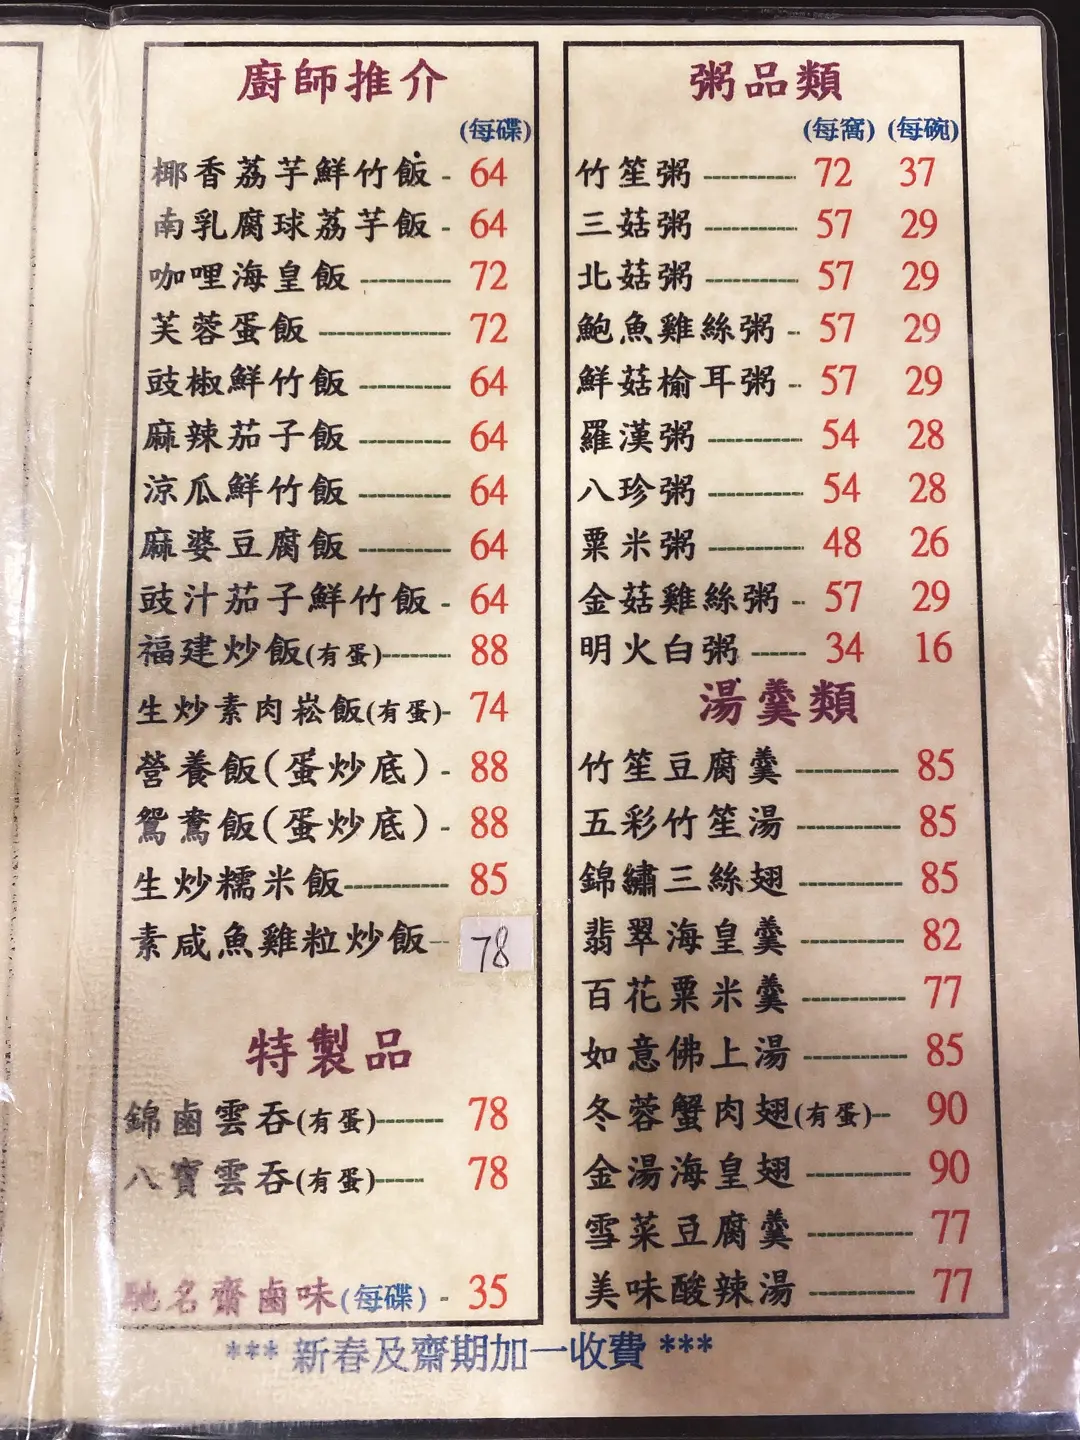 廚師推介
(每碟)
椰香荔芋鮮竹飯 - 64
南乳腐球荔芋飯 - 64
咖哩海皇飯 ---------- 72
芙蓉蛋飯 -------------- 72
豉椒鮮竹飯 ---------- 64
麻辣茄子飯 ---------- 64
涼瓜鮮竹飯 ---------- 64
麻婆豆腐飯 ---------- 64
豉汁茄子鮮竹飯 - 64
福建炒飯(有蛋)------- 88
生炒素肉崧飯(有蛋)- 74
營養飯(蛋炒底) - 88
鴛鴦飯(蛋炒底) - 88
生炒糯米飯----------- 85
素咸魚雞粒炒飯-- 78
特製品
錦鹵雲吞(有蛋)------- 78
八寶雲吞(有蛋)----- 78
馳名齋鹵味(每碟) - 35
粥品類
(每窩) (每碗)
竹笙粥 ---------- 72 37
三菇粥 ---------- 57 29
北菇粥 ---------- 57 29
鮑魚雞絲粥 - 57 29
鮮菇榆耳粥 - 57 29
羅漢粥 ---------- 54 28
八珍粥 ---------- 54 28
粟米粥 ---------- 48 26
金菇雞絲粥 - 57 29
明火白粥 ------ 34 16
湯羹類
竹笙豆腐羹 ---------- 85
五彩竹笙湯 ---------- 85
錦繡三絲翅 ---------- 85
翡翠海皇羹 ---------- 82
百花粟米羹 ---------- 77
如意佛上湯 ---------- 85
冬蓉蟹肉翅(有蛋)-- 90
金湯海皇翅 ---------- 90
雪菜豆腐羹 ---------- 77
美味酸辣湯 ---------- 77
*** 新春及齋期加一收費 ***